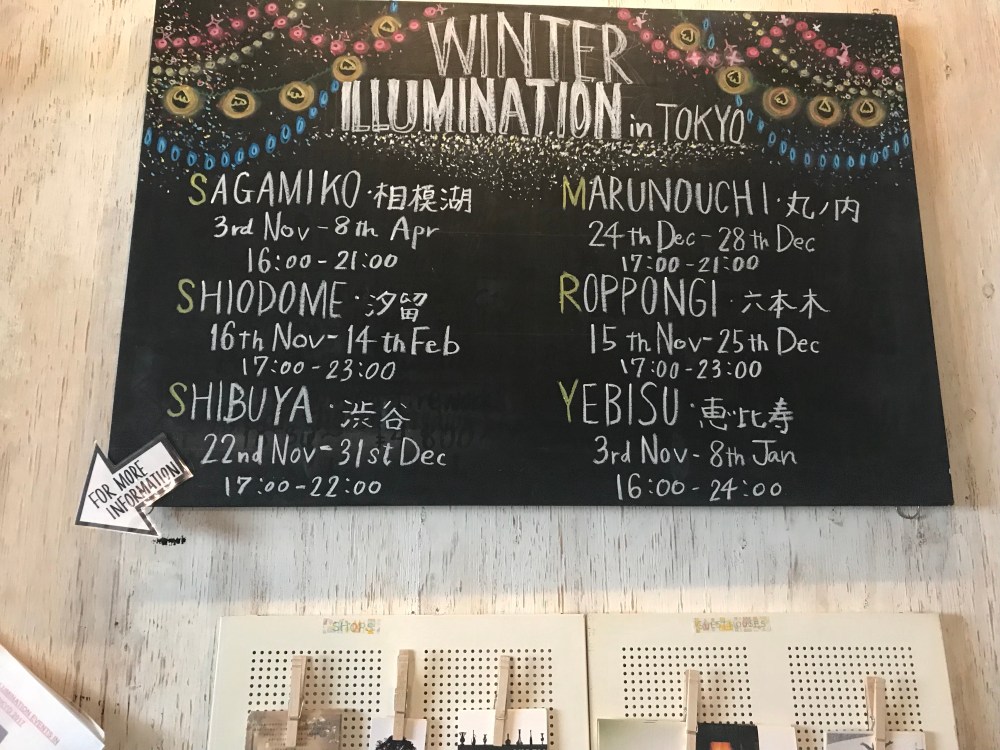 WINTER
ILLUMINATION in TOKYO
SAGAMIKO・相模湖
3rd Nov - 8th Apr
16:00 - 21:00
SHIODOME・汐留
16th Nov - 14th Feb
17:00 - 23:00
SHIBUYA・渋谷
22nd Nov - 31st Dec
17:00 - 22:00
MARUNOUCHI・丸ノ内
24th Dec - 28th Dec
17:00 - 21:00
ROPPONGI・六本木
15th Nov - 25th Dec
17:00 - 23:00
YEBISU・恵比寿
3rd Nov - 8th Jan
16:00 - 24:00
FOR MORE
INFORMATION